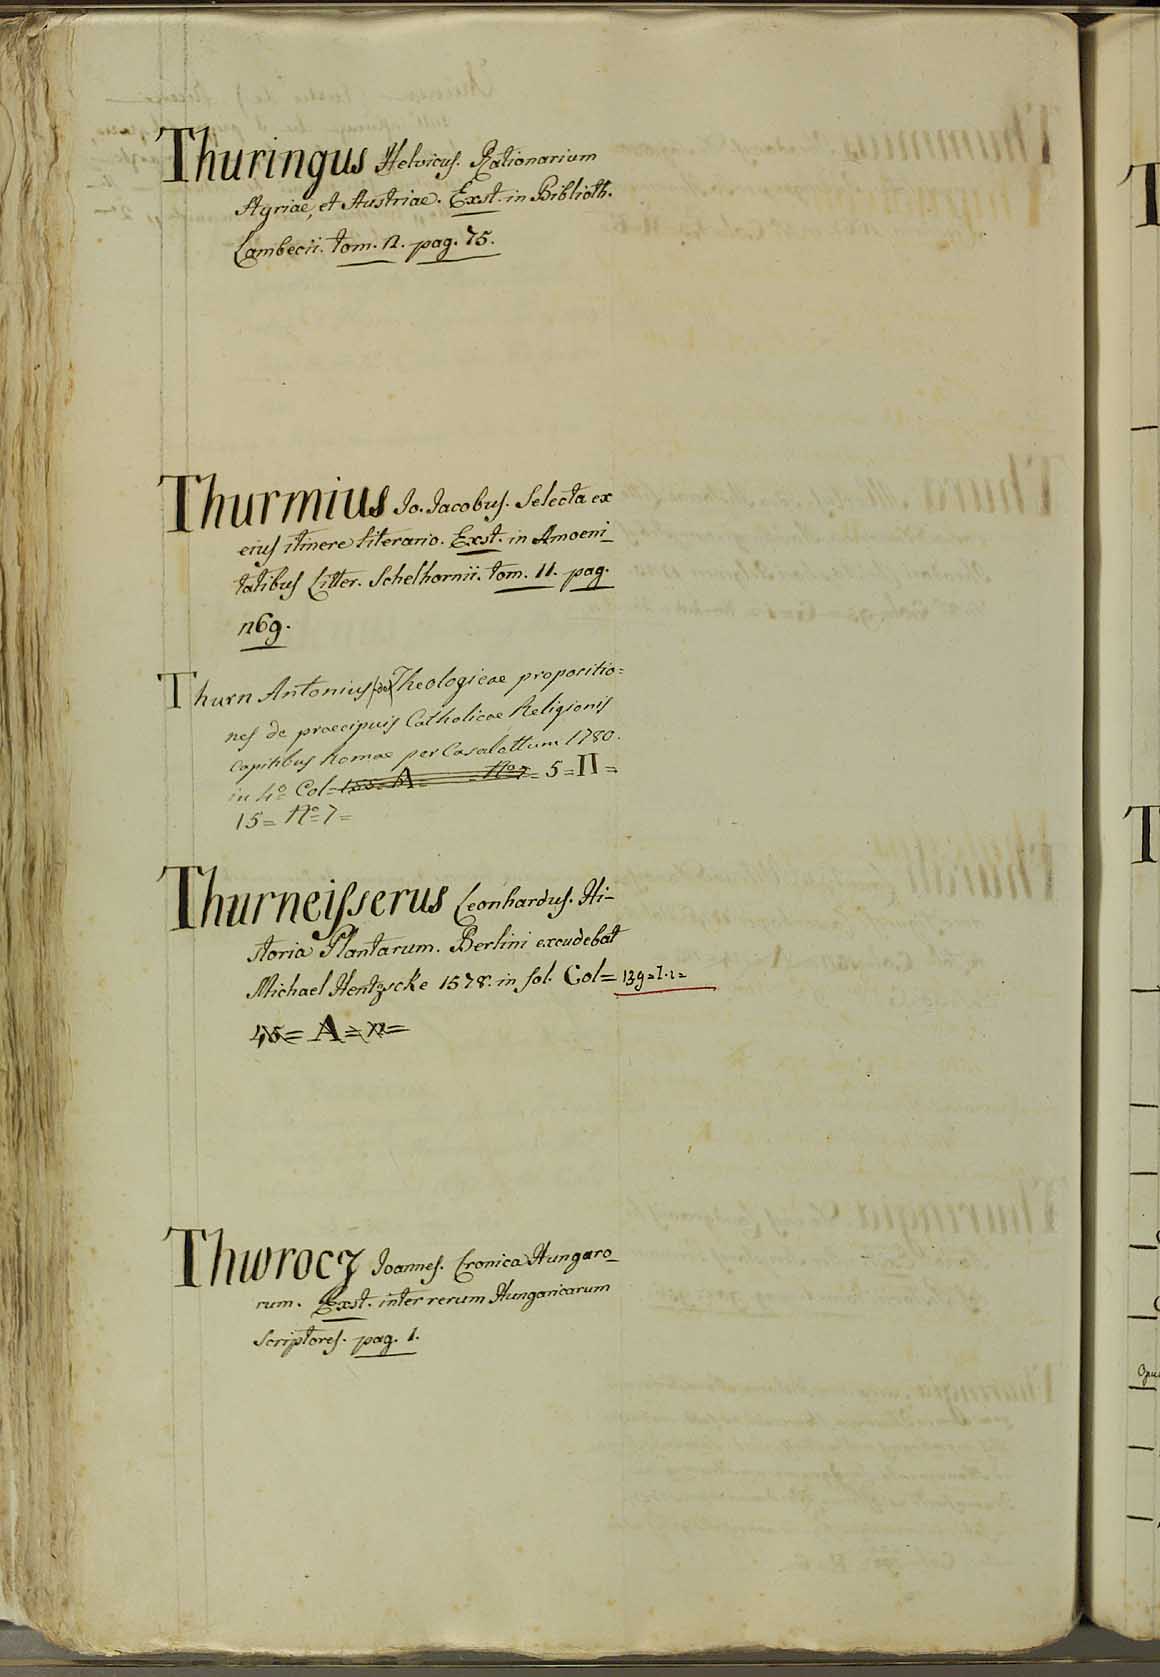 Thuringus Helvicus. Rationarium
Styriae, et Austriae. Exst. in Biblioth.
Lambecii. tom. 2. pag. 75.
Thurmius Io. Jacobus. Selecta ex
eius itinere literario. Exst. in Amoeni_
tatibus Litter. Schelhornii. tom. 11. pag.
269.
Thurn Antonius (de) Theologicae propositio=
nes de praecipuis Catholicae Religionis
Capitibus Romae per Casalettum 1780.
in 4º Col= A= Nº 7= 5=II=
15= Nº 7=
Thurneisserus Leonhardus. Hi-
storia Plantarum. Berlini excudebat
Michael Hentzscke 1578. in fol. Col= 139=I.1=
45= A= 12=
Thwrocz Joannes. Cronica Hungaro_
rum. Exst. inter rerum Hungaricarum
Scriptores. pag. 1.